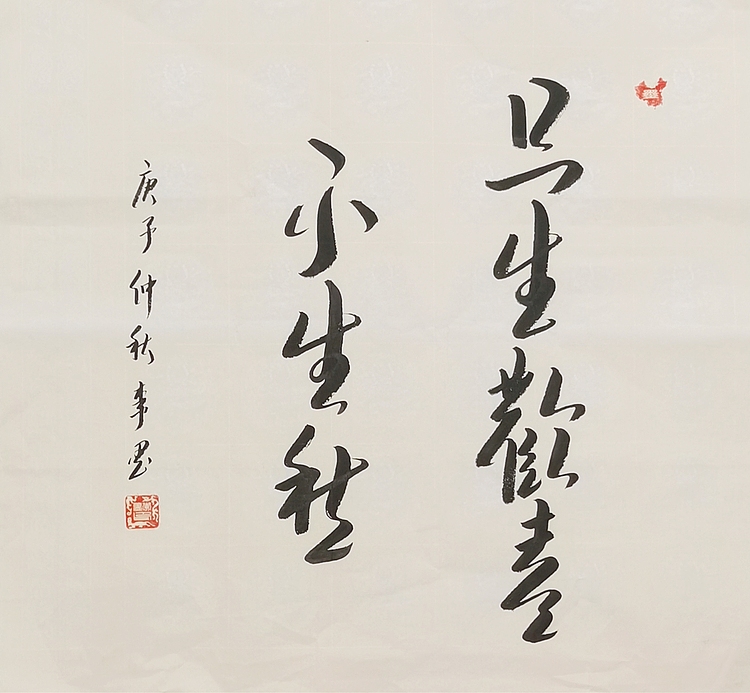 只生歡喜
不生愁
庚子仲秋李墨